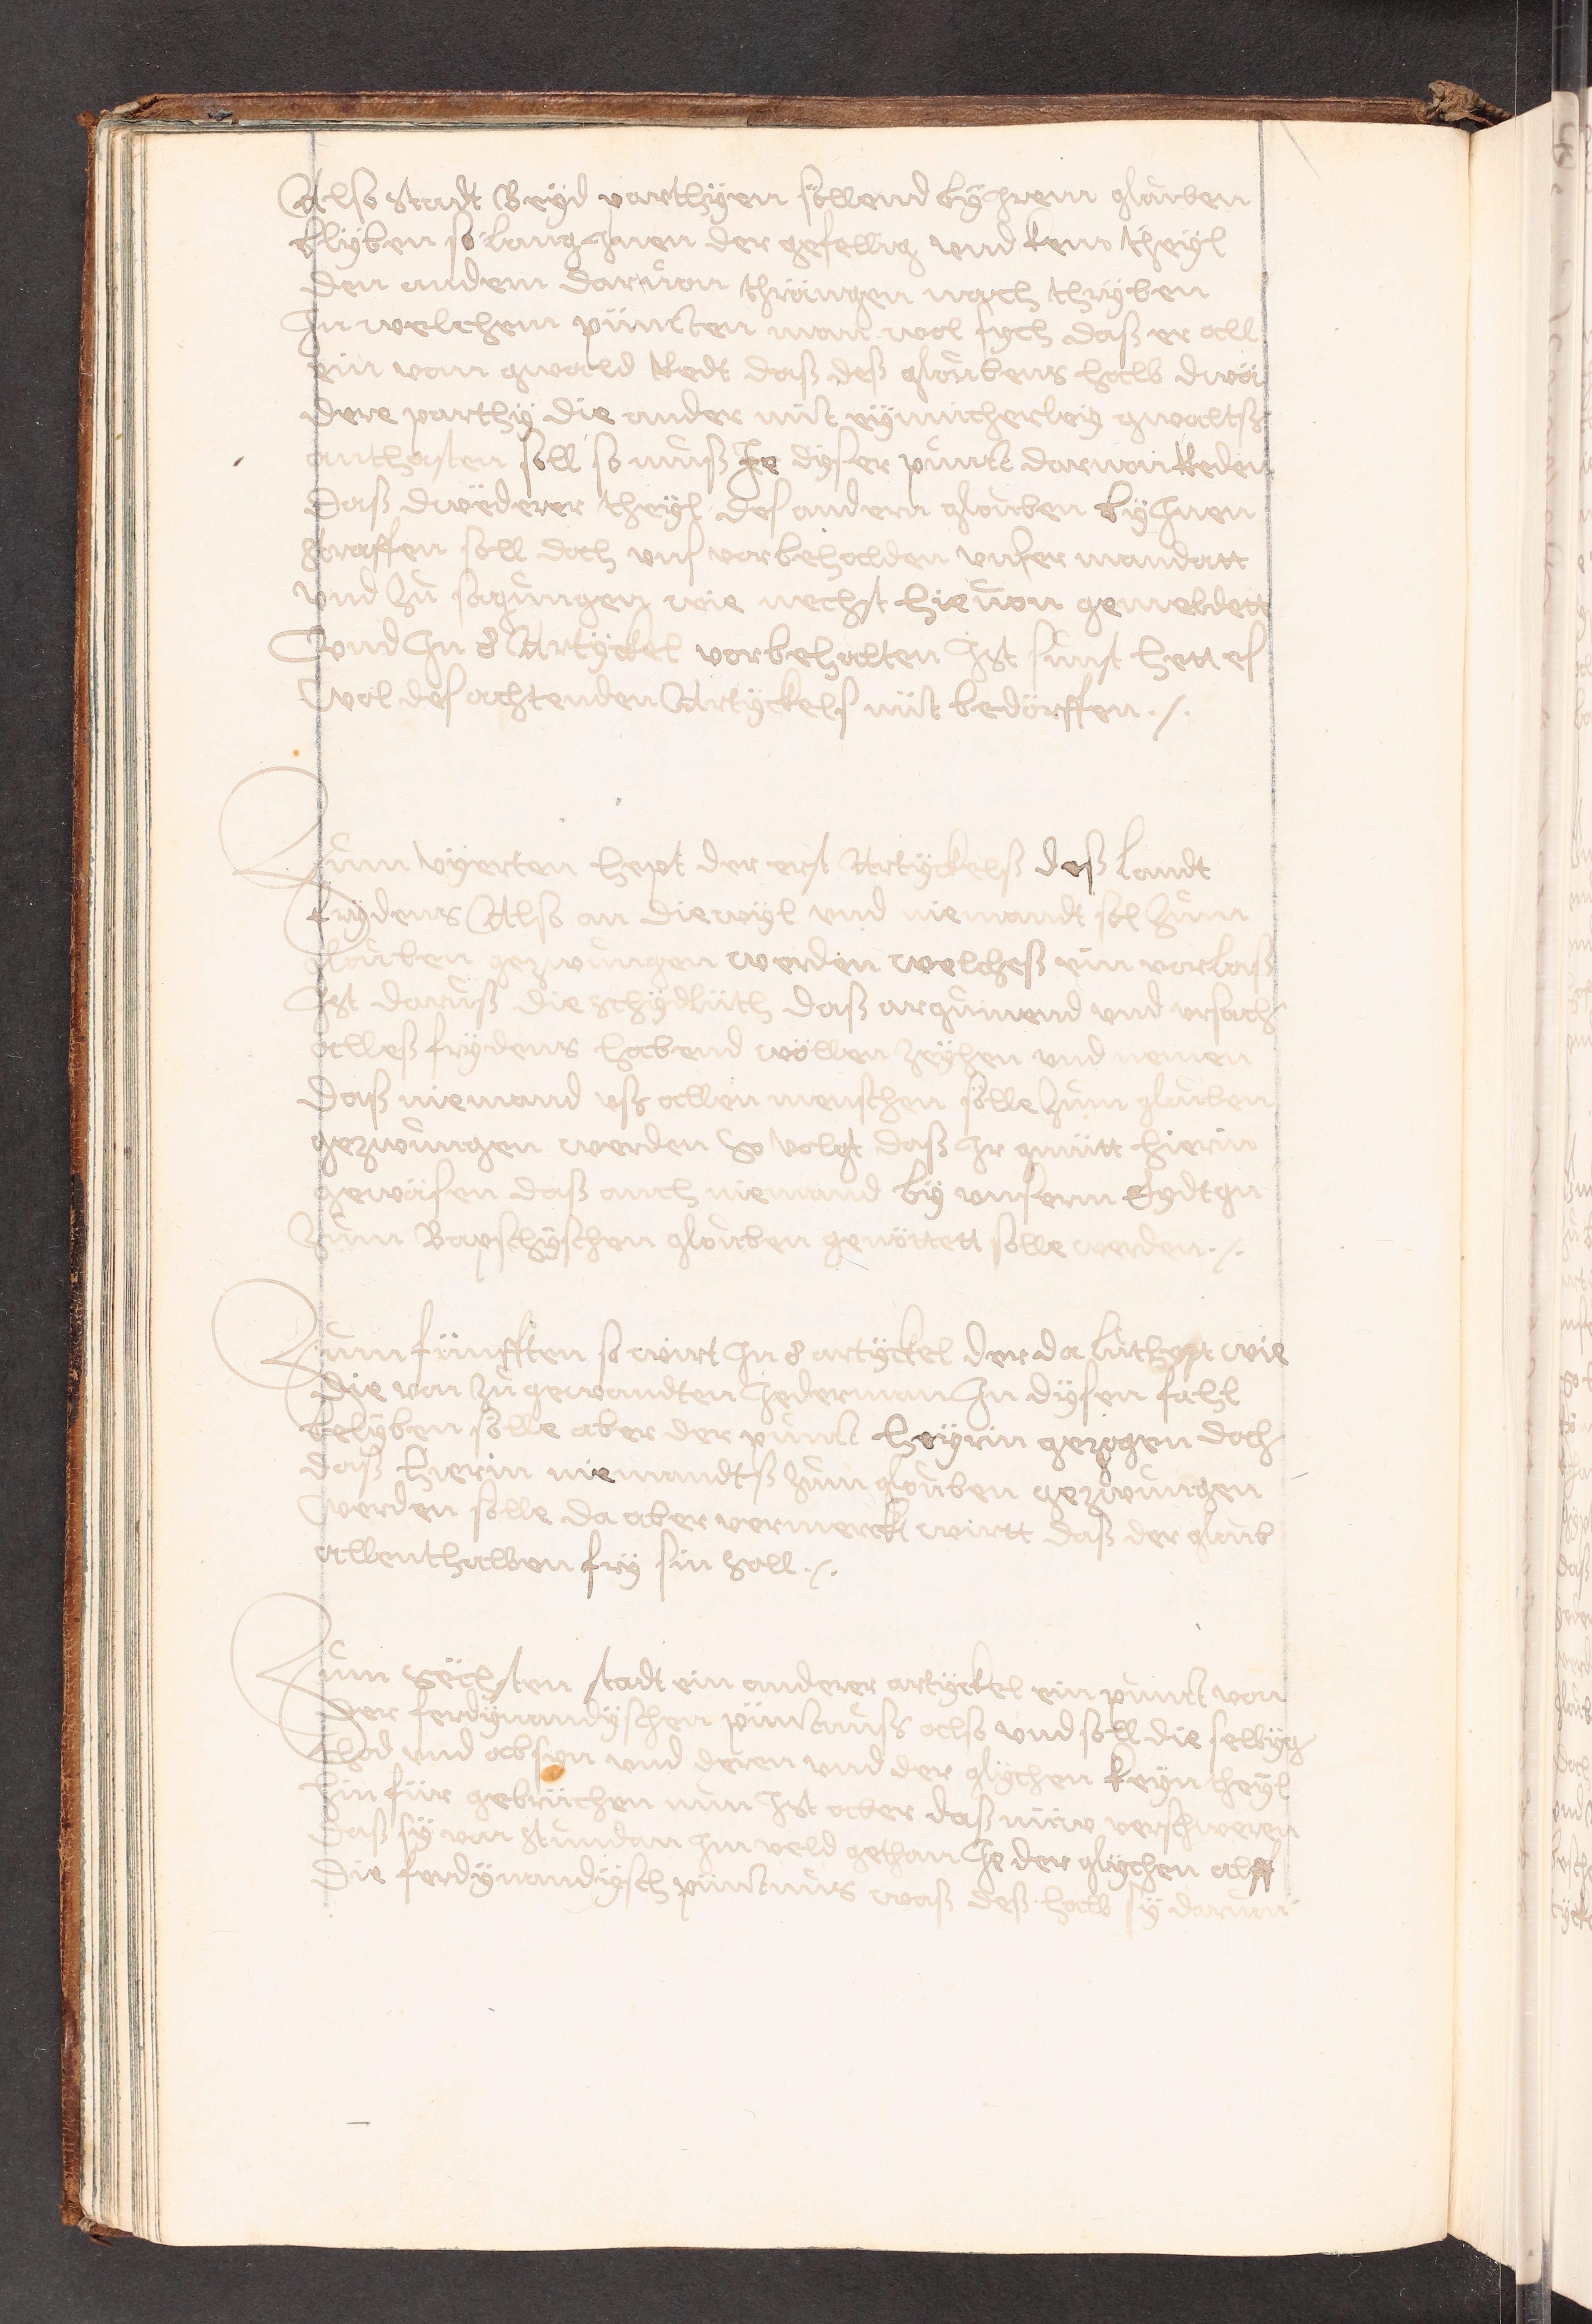 Also stadt Beÿd parthÿen söllend bÿ Jrem glouben
blÿben so lang Jnen der gefellig vnd kein theÿl
den andern daruon thrängen noch thrÿben
In welchem püncten man wol sych daß er all
ein vom gwald Redt daß deß gloubens halb dwä
dere parthÿ die ander mit eÿnicherleÿ gwaltß
anthasten soll so muß Je dÿser punct daruon Reden
daß dwëderer theÿl des andern glouben bÿ Jnen
straffen soll doch vns vorbehalden vnser mandatt
vnd Zu sagungen wie nechst hieuon gemeldett
vnd Jn 8 Artÿckel vorbehalten Jst sunst hett es
wol des achtenden Artÿckels nüt bedörffen ./.
Zum vÿerten hept der erst Artÿckelß deß Landt
frÿdens Also an diewÿl vnd niemandt sol Zum
glouben gezwungen werden welcheß ein vorlaß
Jst daruß die schÿdlüth daß argumend vnd vrsach
alleß frÿdens habend wöllen Zëÿhen vnd nemen
daß niemand vß allen menschen sölle Zum glouben
gezwungen werden So volgt daß Jr gmütt hierin
gewäsen daß auch niemand bÿ vnserm Eydtgn
Zum Bapschÿschen glouben genöttett sölle werden ./.
Zum fünfften so wirt Jn 8 artÿckel der da luthet wie
die von Zugewandten Jederman Jn dÿsen fahl
belÿben sölle aber der punct heÿrin gezogen doch
daß hierin niemandtß Zum glouben gezwungen
werden sölle da aber vermerckt wirtt daß der gloub
allenthalben frÿ sin soll ./.
Zum Sëchsten stadt ein anderer artÿckel ein punct von
der ferdÿnandÿschen püntnuß also vnd soll die selbÿg
thod vnd ab syn vnd deren vnd der glÿchen keÿn theÿl
hinfür gebrüchen nun Jst aber daß nüw verschweren
daß sÿ von stundan Jm veld gethan Je der glÿchen alß
die ferdÿnandÿsch püntnus waß deß halb sÿ daruon